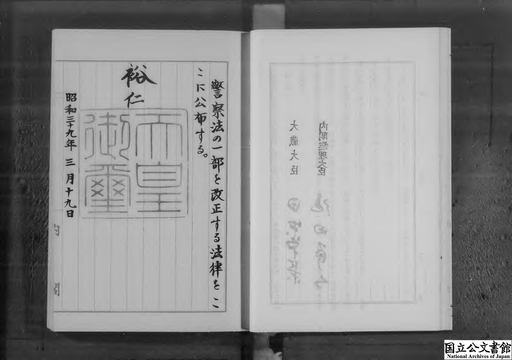 警察法の一部を改正する法律をこ
こに公布する。
裕仁
天皇
御璽
昭和三十九年三月十九日
内閣総理大臣
大蔵大臣
国立公文書館
National Archives of Japan